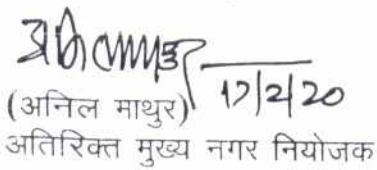 17/2/20
(अनिल माथुर)
अतिरिक्त मुख्य नगर नियोजक